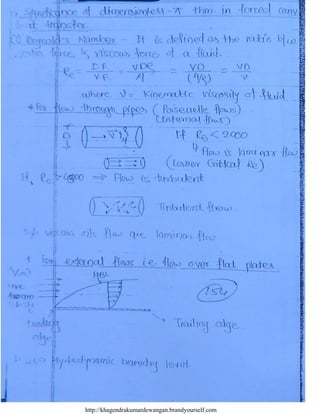 Significance of dimensionless-π thm in forced conv
heat transfer
(1) Reynolds Number - It is defined as the ratio b/w
force & viscous force of a fluid.
Re = I.F. / V.F. = = VD / = VD / ν
where ν = Kinematic viscosity of fluid
* for flow through pipes (Poiseuille flows)
(Internal flows)
If Re < 2000
flow is laminar flow
(Lower Critical Re)
If, Re > 4000 ⇒ Flow is turbulent
Turbulent flow
high viscous oils flow are laminar flow
* for external flows i.e. flow over flat plates
HBL
154
Trailing edge.
leading
edge
Hydrodynamic boundary
http://khagendrakumardewangan.brandyourself.com